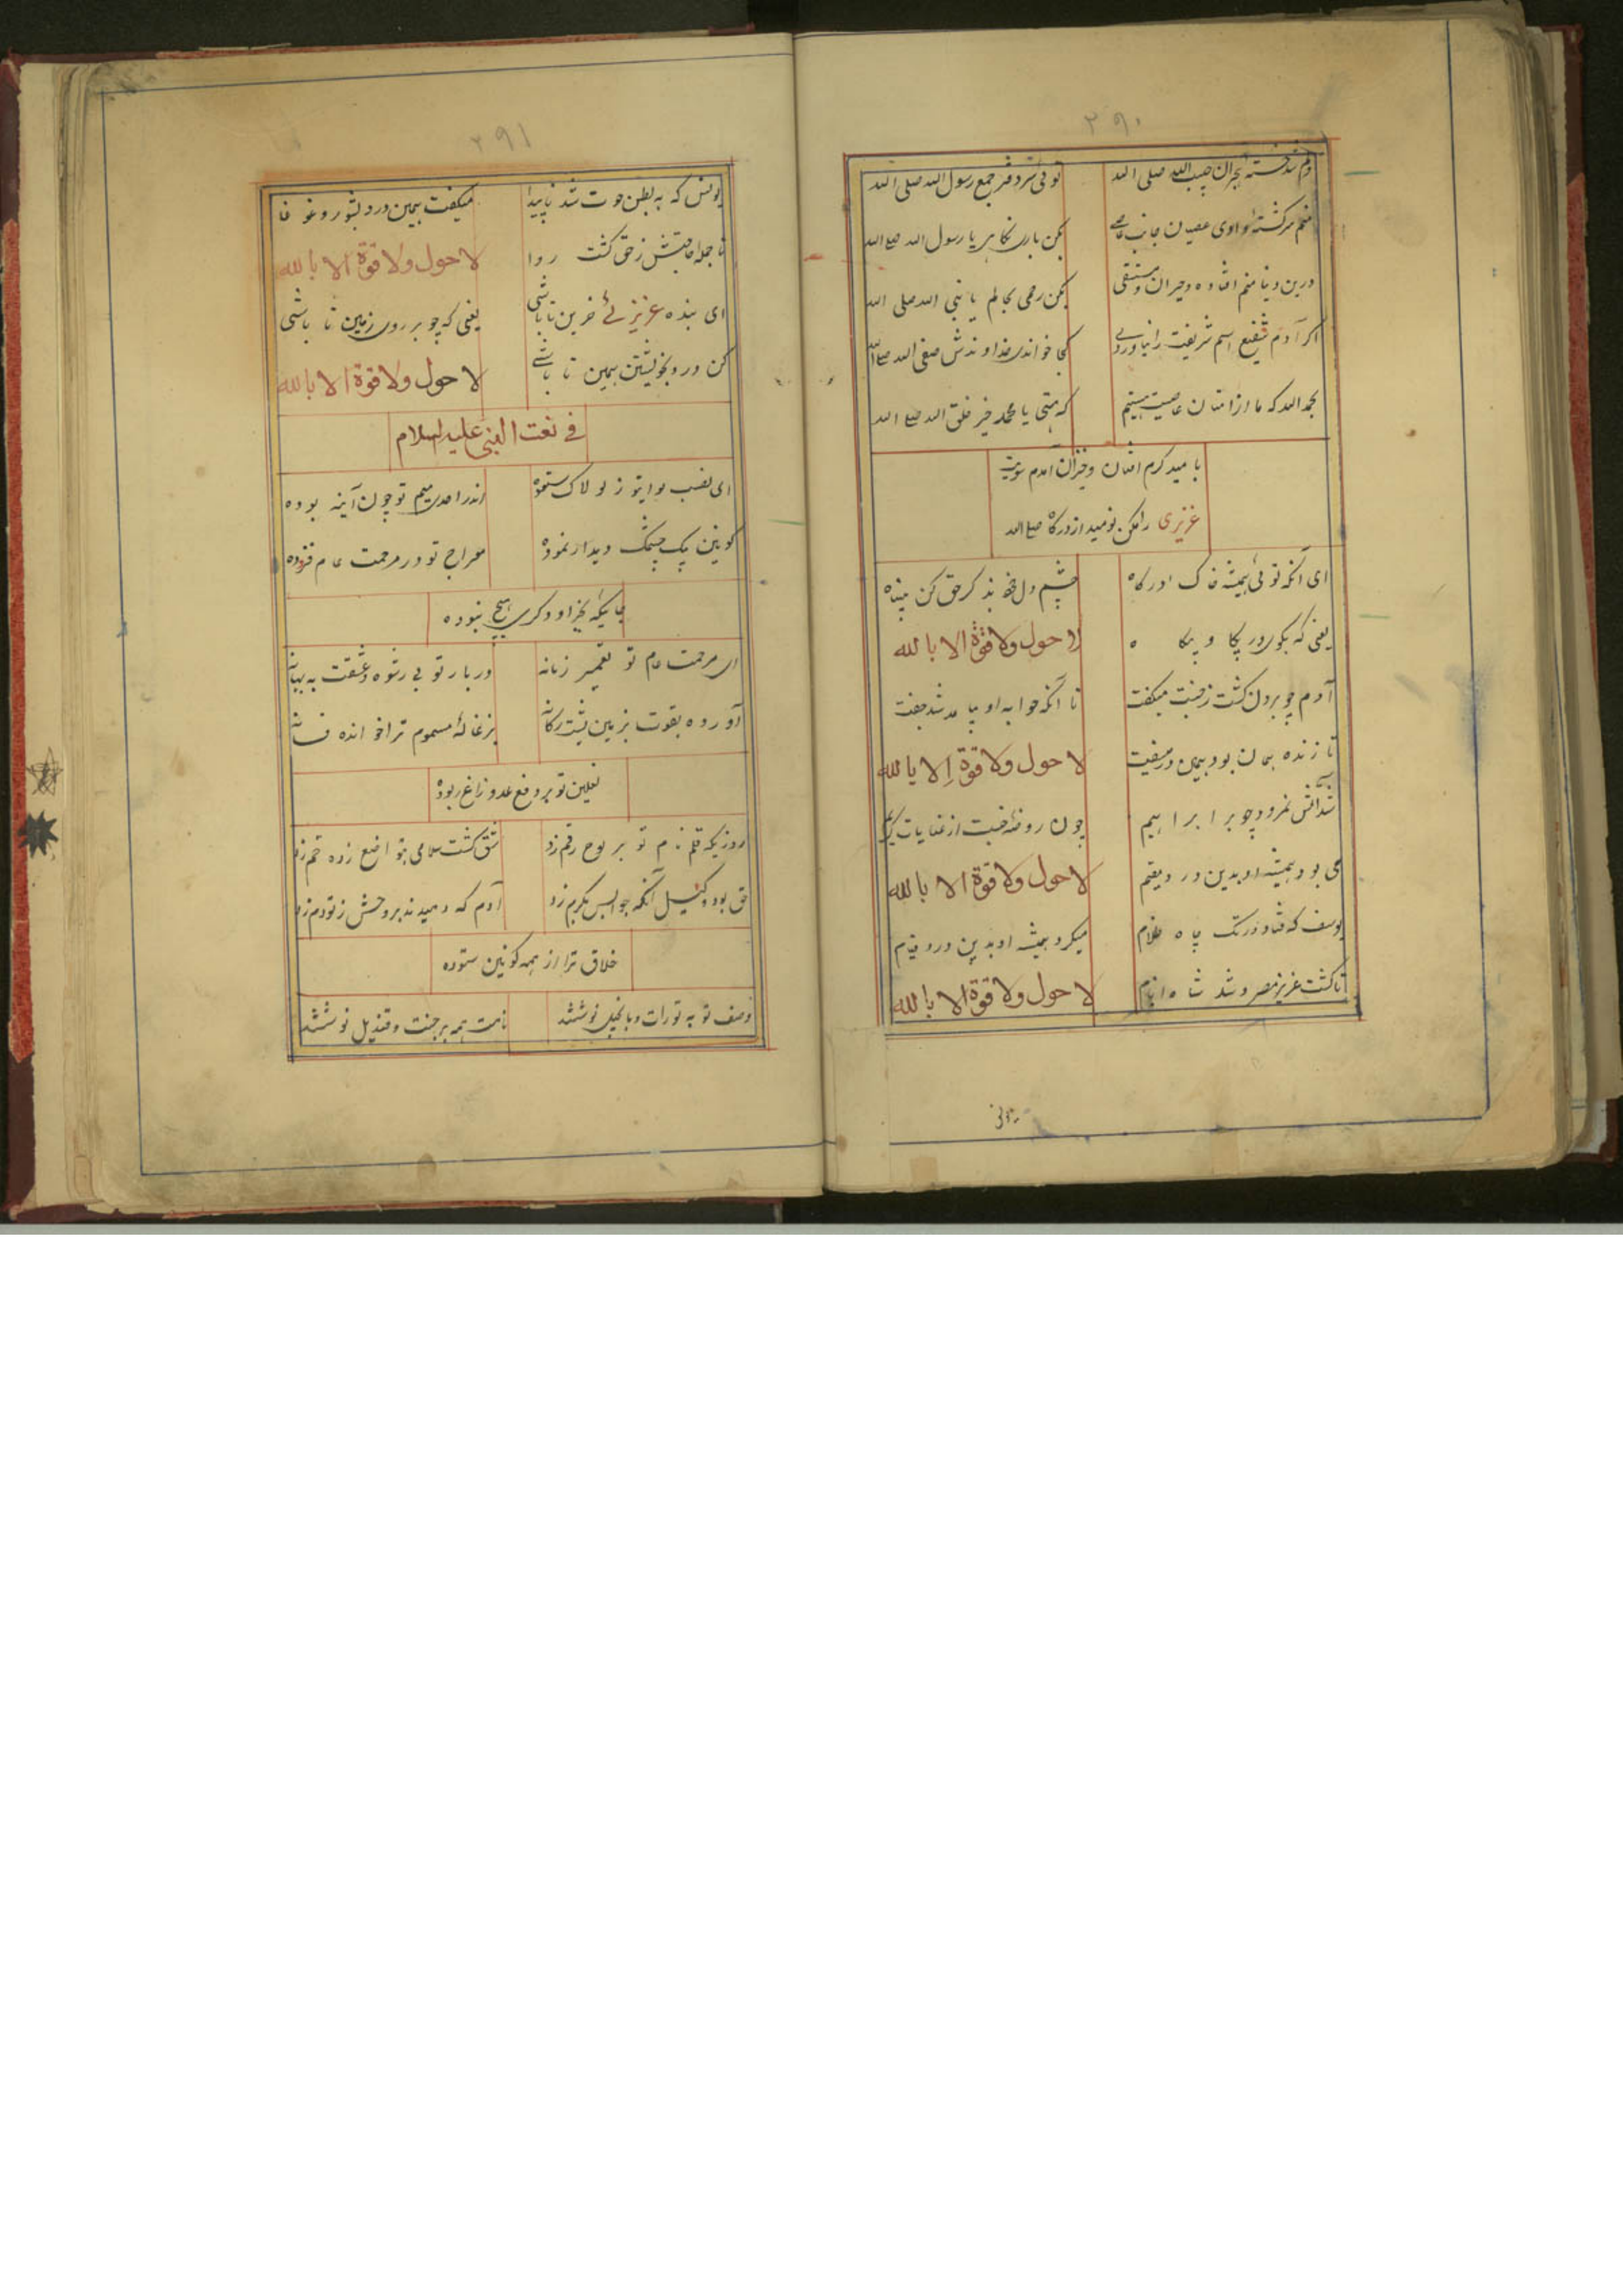 ۳۹۰
دلم شد خسته هجران حبیب الله صلی الله توئی سر دفتر جمع رسول الله صلی الله
منم سرکشته وادوی عصیان جانب عاصی بکن باری نکاهی یا رسول الله صلی الله
درین دنیا منم افتاده و حیران و مستقی بکن رحمی بحالم یا نبی الله صلی الله
اکر آدم شفیع اسم شریفت را نیاوردی کجا خواندی خداوندش صفی الله صلی الله
بحمد الله که ما از امتان عاصیت هستیم که هستی یا محمد خیر خلق الله صلی الله
بامید کرم افتان و خیزان آمدم سویت
عزیزی را مکن نومید از درکاه صلی الله
ای آنکه توئی همیشه خاک درکاه چشم دل خود بذکر حق کن
یعنی که بکوی در پکا و بیکا ه لا حول ولا قوة الا بالله
آدم چو برون کشت ز جنت میکفت تا آنکه حوا به او بیامد شد جفت
تا زنده بمان بود بهمین در میفیت لا حول ولا قوة الا بالله
شد آتش نمرود چو بر ابراهیم چون روضه جنت از عنایات کریم
می بود همیشه او بدین درد مقیم لا حول ولا قوة الا بالله
یوسف که فتاد در تک چاه ظلام میکرد همیشه او بدین ورد قیام
تا کشت عزیز مصر و شد شاه انام لا حول ولا قوة الا بالله
یونس
۳۹۱
یونس که به بطن حوت شد ناپیدا میکفت بهمین درد بشور و غوغا
تا جمله حاجتش ز حق کشت روا لا حول ولا قوة الا بالله
ای بنده عزیزئے حزین تا باشی یعنی که چو بر روی زمین تا باشی
کن ورد بخویشتن همین تا باشے لا حول ولا قوة الا بالله
فی نعت النبی علیه السلام
ای نصب لوای تو ز لولاک ستوده اندر احدی میم تو چون آینه بوده
کونین بیک چشمک دیدار نموده معراج تو در مرحمت عام فزوده
جائیکه بجز او دکری هیچ نبوده
ای مرحمت عام تو تعمیر زمانه دربار تو بی رشوه و شفقت به بهانه
آورده بقوت بزمین پشت رکانه بزغالهٔ مسموم ترا خوانده فسانه
نعلین تو بر دفع عدو زاغ ربوده
روزیکه قلم نام تو بر لوح رقم زد شق کشت سلامی بتواضع زده خم زد
حق بود وکیل آنکه جوابس بکرم زد آدم که دمیدند بروحش ز تو دم زد
خلاق ترا از همه کونین ستوده
وصف تو به تورات و بانجیل نوشتند نامت همه بر جنت و قندیل نوشتند